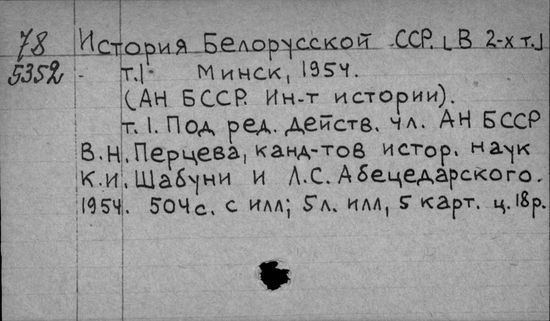 78 История Белорусской ССР. [В 2-х т.]
5352 - т.1- Минск, 1954.
(АН БССР. Ин-т истории).
т. 1. Под ред. действ. чл. АН БССР
В.Н. Перцева, канд-тов истор. наук
К.И. Шабуни и Л.С. Абецедарского.
1954. 504с. с илл; 5л. илл, 5 карт. ц. 18р.